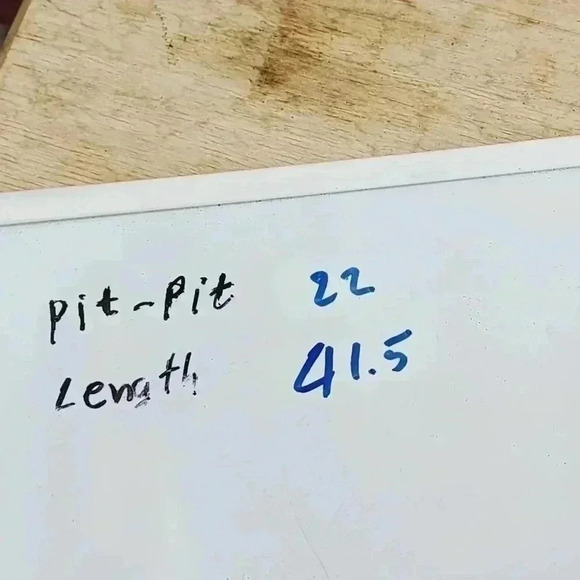 Pit-Pit 22
Length 41.5